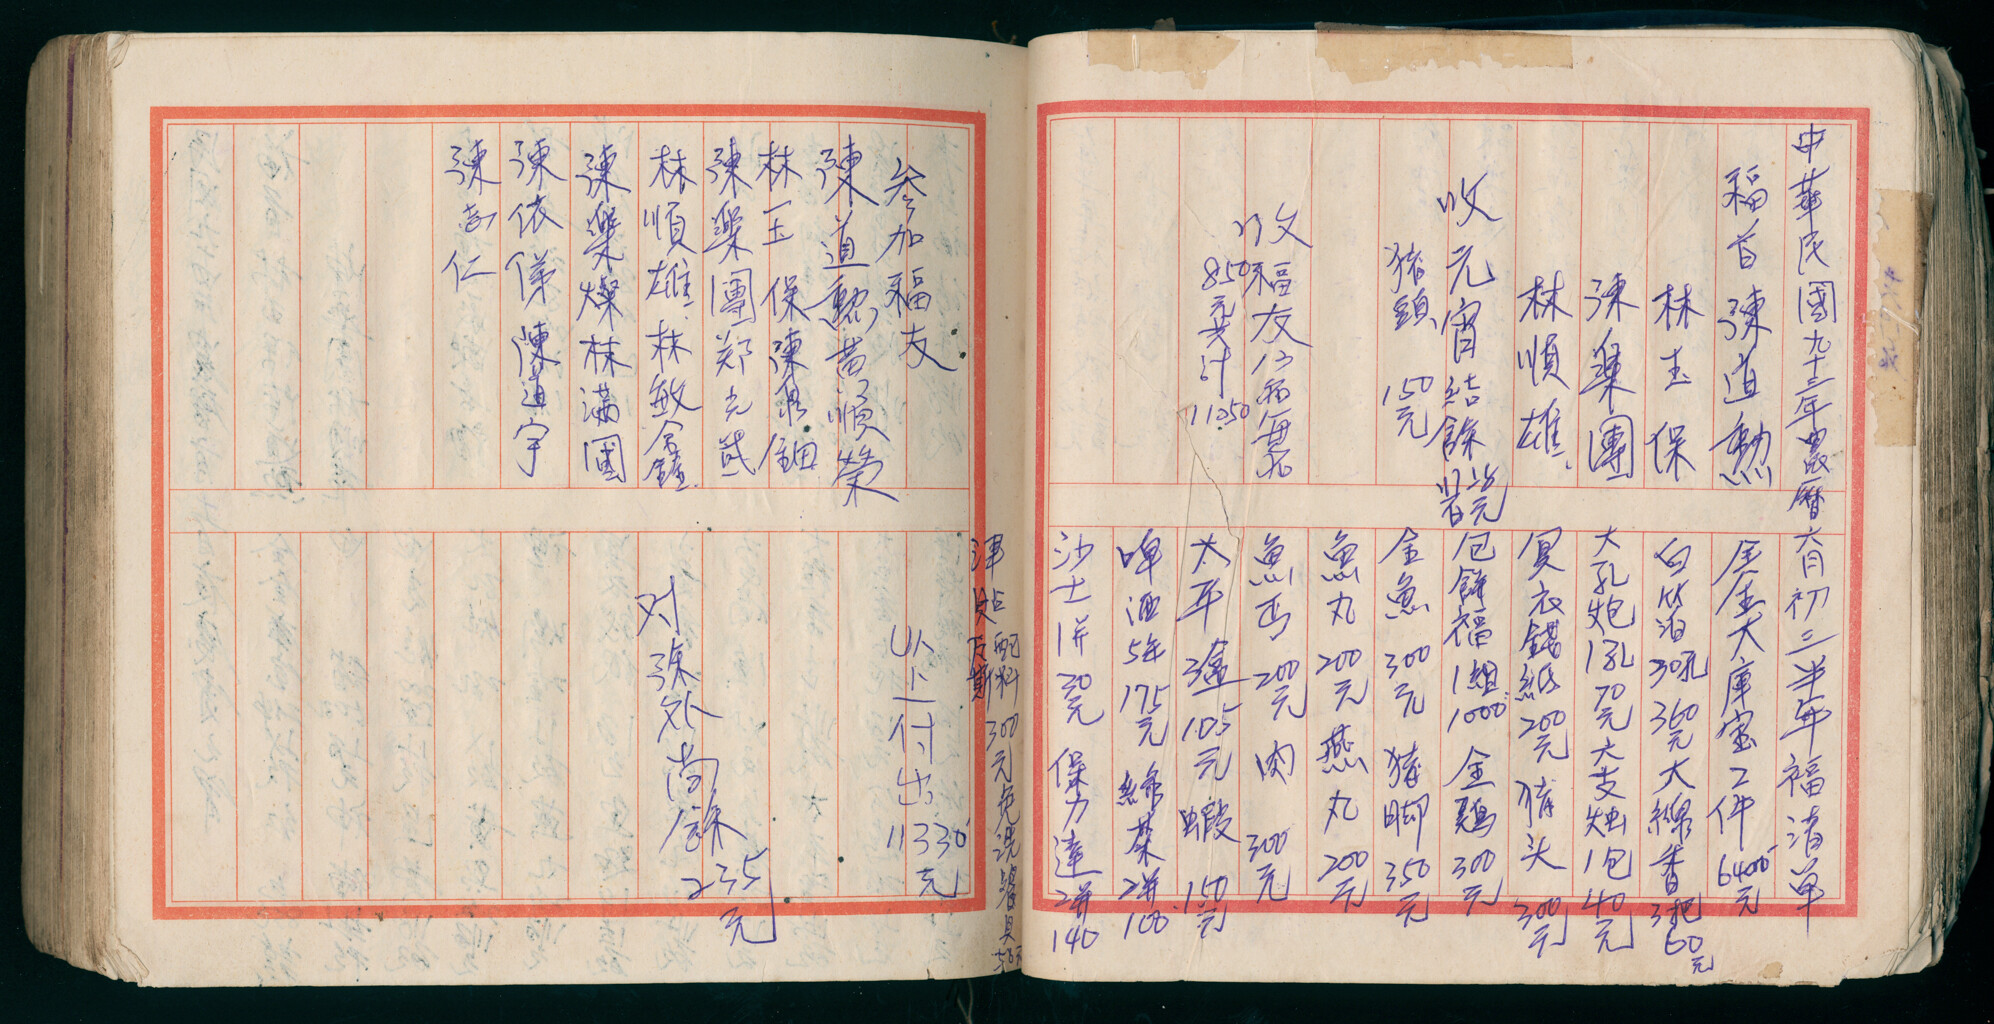 中華民國九十三年農曆六月初三半年福清單
福首 陳道勳
林玉保
陳樂團
林順雄
收元宵結餘
猪鎮 150元
收福友
850元 共計
金金大庫宝2件 6400元
白箔30孔 360元 大線香3把60元
大孔炮1孔70元 大支烛1包40元
冥衣錢紙200元 猪头300元
包餅福1組1000 金鷄300元
金魚300元 猪脚350元
魚丸200元 燕丸200元
魚丐200元 肉300元
太平 105元 蝦150元
啤酒5瓶175元 綠茶2瓶100
沙士1瓶30元 保力達2瓶140
配料300元免洗餐具
以上付出11330元
对除外尚餘235元
参加福友
陳道勳 黄順榮
林玉保 陳
陳樂團 郑光
林順雄 林敏鑫
陳樂燦 林滿國
陳依俤 陳道宇
陳 仁